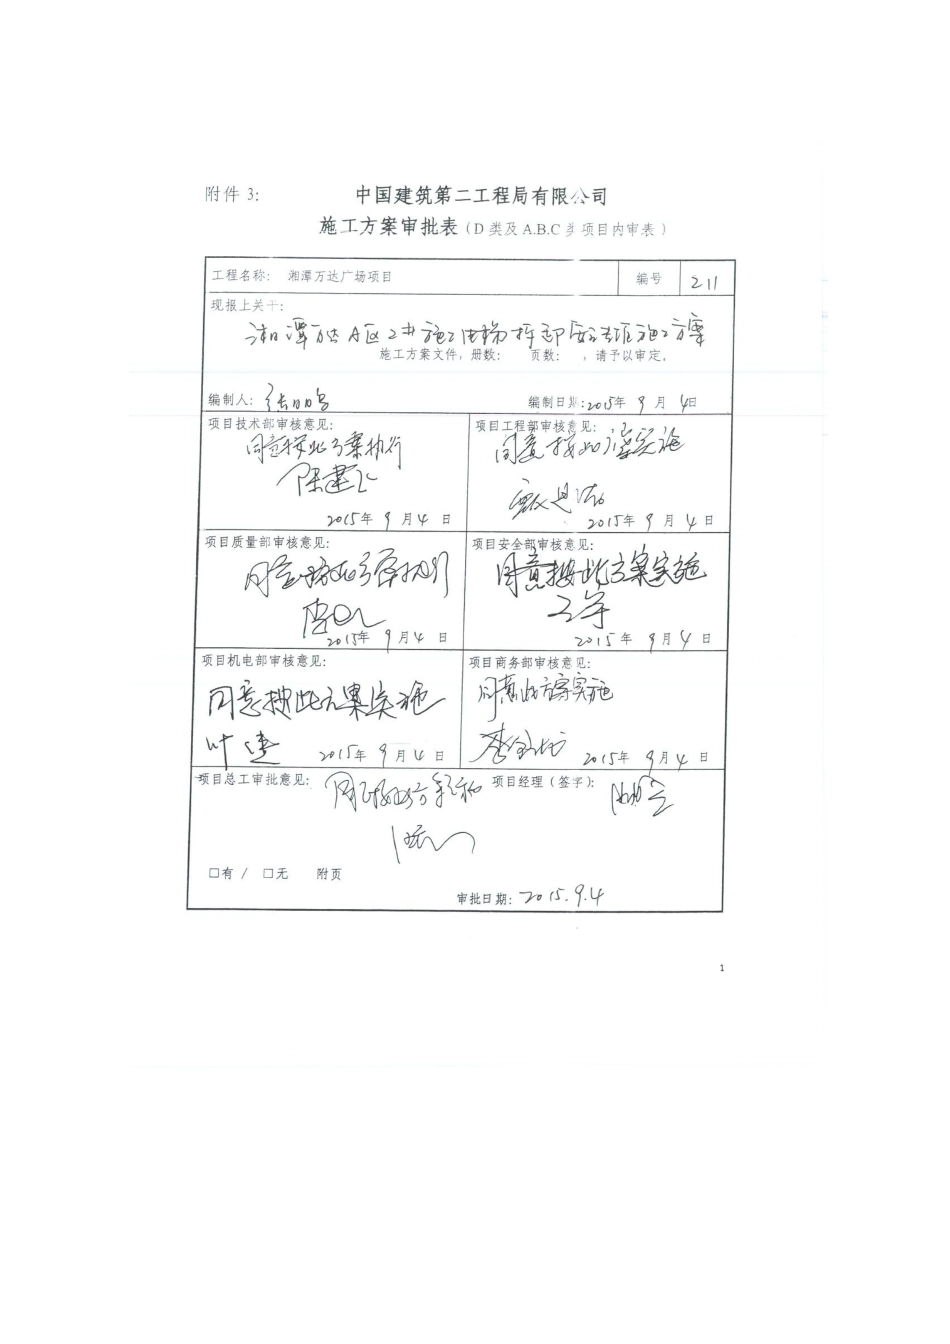 附件 3:
中国建筑第二工程局有限公司
施工方案审批表（D 类及 A.B.C 类项目内审表）
工程名称: 湘潭万达广场项目 编号 211
现报上关于:
湘潭万达A区2#施工电梯拆卸安全专项施工方案
施工方案文件，册数: 页数: ，请予以审定。
编制人: 编制日期:2015年 9 月 4日
项目技术部审核意见: 项目工程部审核意见:
同意按此方案执行 同意按此方案实施
陈建飞
2015年 9 月 4 日 2015年 9 月 4 日
项目质量部审核意见: 项目安全部审核意见:
同意按此方案执行 同意按此方案实施
2015年 9 月 4 日 2015年 9月 4 日
项目机电部审核意见: 项目商务部审核意见:
同意按此方案实施 同意此方案实施
2015年 9月 4 日 2015年 9月 4 日
项目总工审批意见: 项目经理（签字）:
□有 / □无 附页
审批日期: 2015.9.4
1